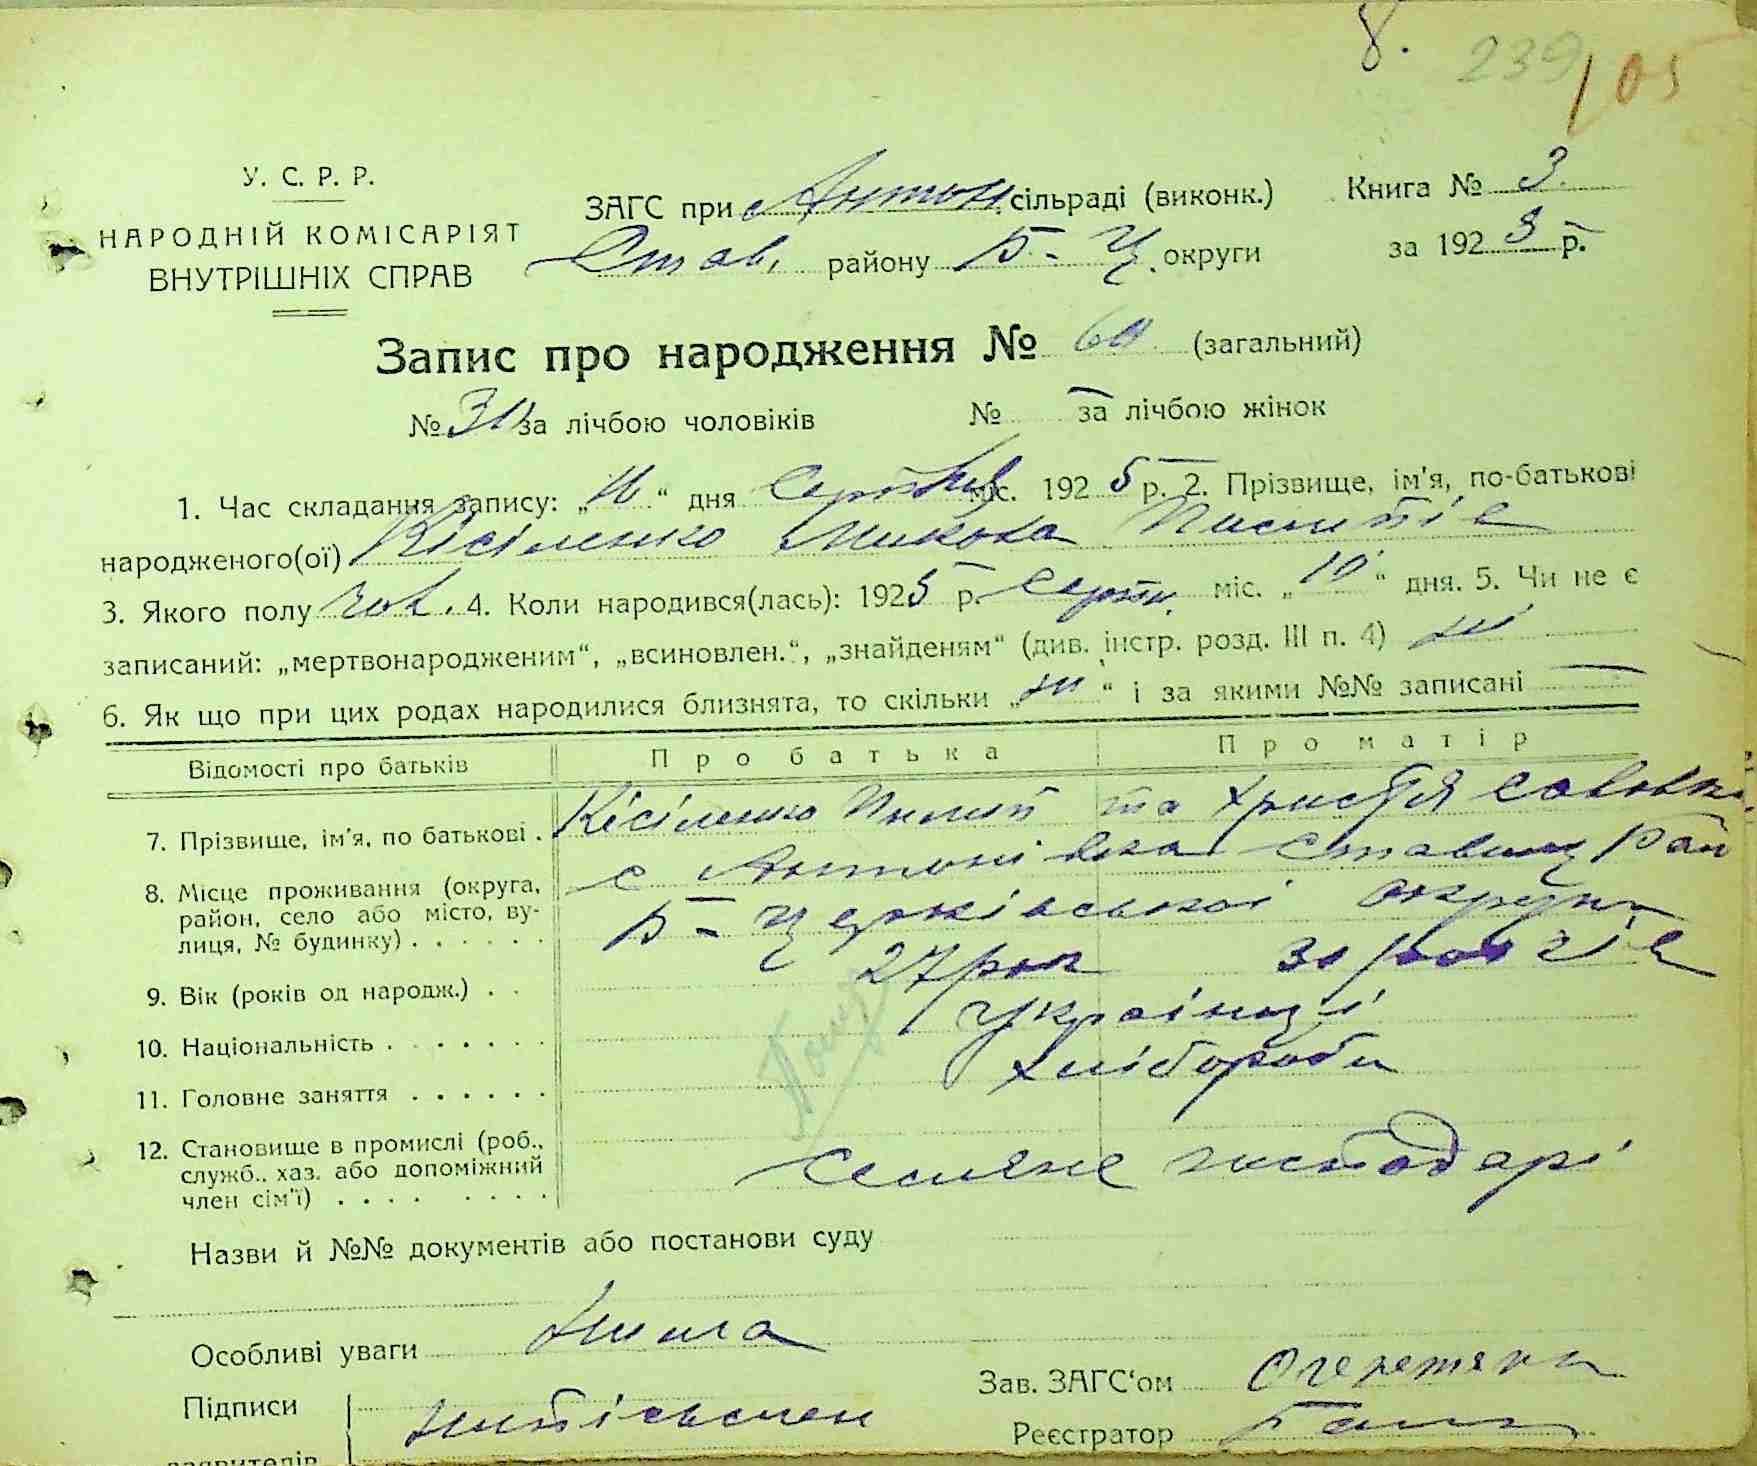 8. 239 105
У. С. Р. Р.
НАРОДНІЙ КОМІСАРІЯТ
ВНУТРІШНІХ СПРАВ
ЗАГС при Антон. сільраді (виконк.) Книга № 3.
Став. району Б-Ц. округи за 1923 р.
Запис про народження № 60 (загальний)
№ 30 за лічбою чоловіків № за лічбою жінок
1. Час складання запису: „ “ дня Серпня міс. 1925 р. 2. Прізвище, ім'я, по-батькові
народженого(ої) Кісіленко Микола
3. Якого полу чол. 4. Коли народився(лась): 1925 р. Серпн. міс. „10“ дня. 5. Чи не є
записаний: „мертвонародженим“, „всиновлен.“, „знайденям“ (див. інстр. розд. III п. 4) ні
6. Як що при цих родах народилися близнята, то скільки „ні“ і за якими №№ записані —
Відомості про батьків Про батька Про матір
7. Прізвище, ім'я, по батькові . Кісіленко Пилип та Христя Савовна
8. Місце проживання (округа, район, село або місто, вулиця, № будинку) . . . . . . с Антонівка Ставищ Рай
Б-Церківської округи
9. Вік (років од народж.) . . 27 рок 30 років
10. Національність . . . . . . . Українці
11. Головне заняття . . . . . . Хлібороби
12. Становище в промислі (роб., служб., хаз. або допоміжний член сім'ї) . . . . . . . . Селяне господарі
Назви й №№ документів або постанови суду
Особливі уваги Нима
Зав. ЗАГС'ом Огеретяни
Підписи нипісьмен
Реєстратор
заявителів